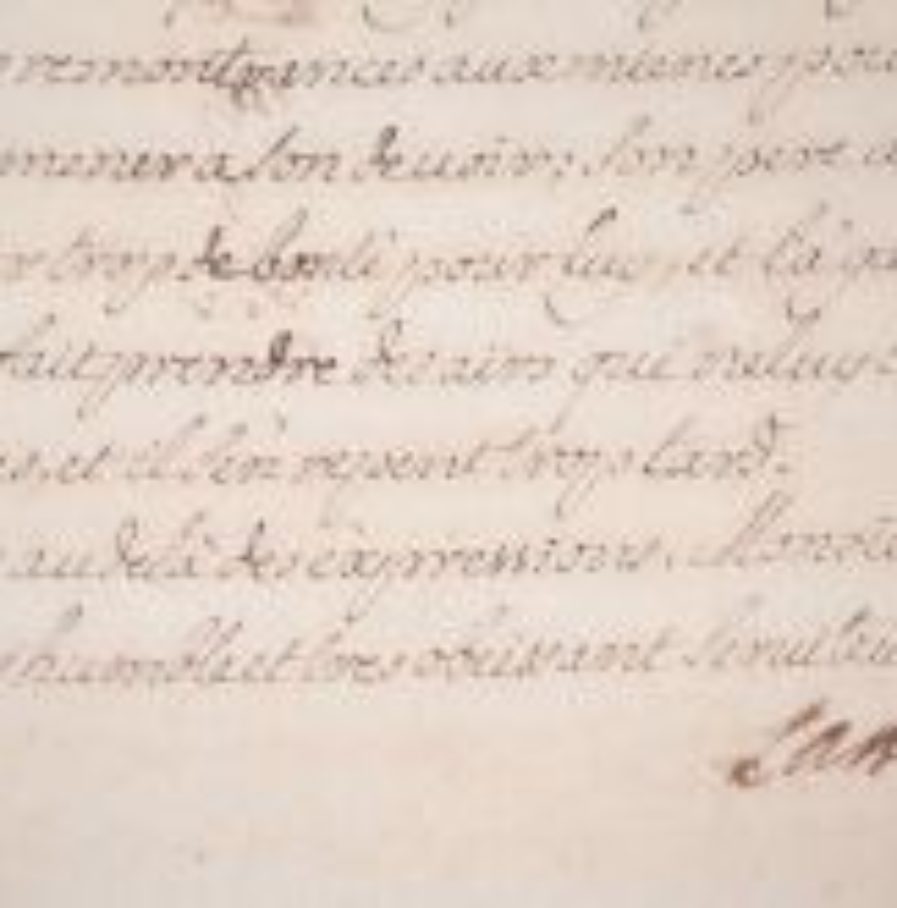 remontrances aux mienes pour
mener a son deuoir. Son pere a
trop de bonté pour luy, et l'a
fait prendre des airs qui ne luy
et il s'en repent trop tard.
au delà des expressions. Monsie
humble et tres obeissant seruiteu